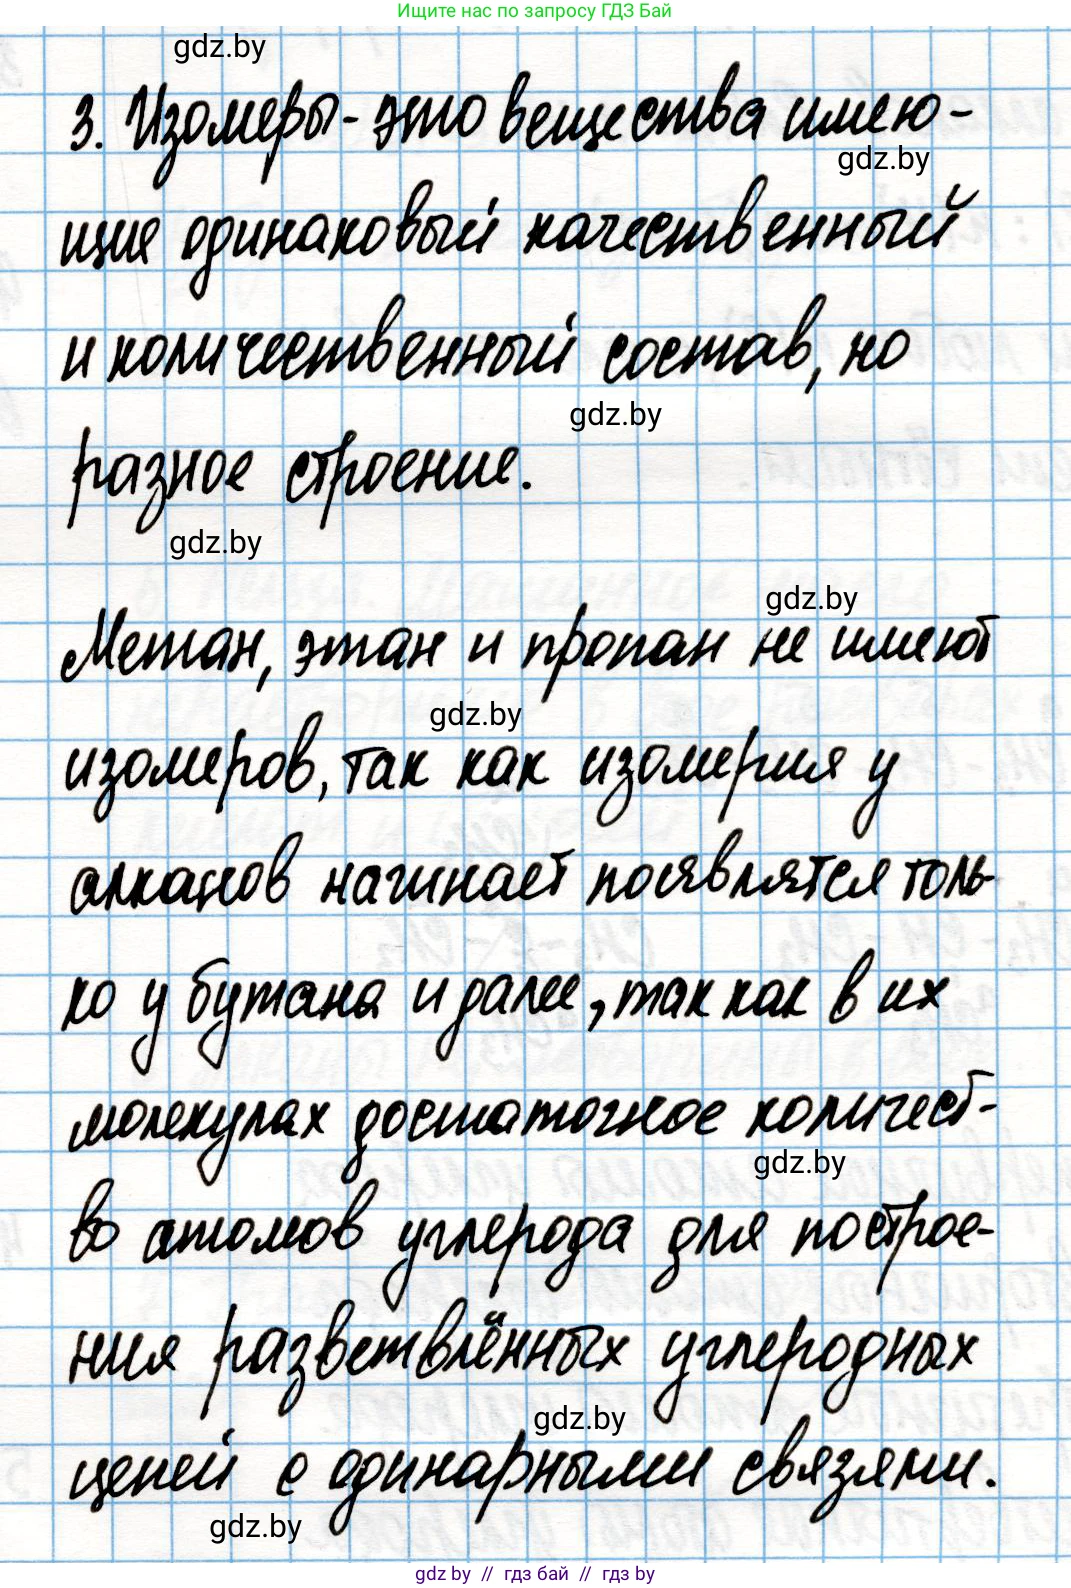 Ищите нас по запросу ГДЗ Бай
gdz.by
3. Изомеры - это вещества имею-
gdz.by
щие одинаковый качественный
и количественный состав, но
gdz.by
разное строение.
gdz.by
gdz.by
Метан, этан и пропан не имеют
gdz.by
изомеров, так как изомерия у
алканов начинает появлятся толь-
ко у бутана и далее, так как в их
молекулах достаточное количест-
gdz.by
во атомов углерода для построе-
ния разветвлённых углеродных
gdz.by
цепей с одинарными связями.
gdz.by
gdz by // гдз бай // гдз by